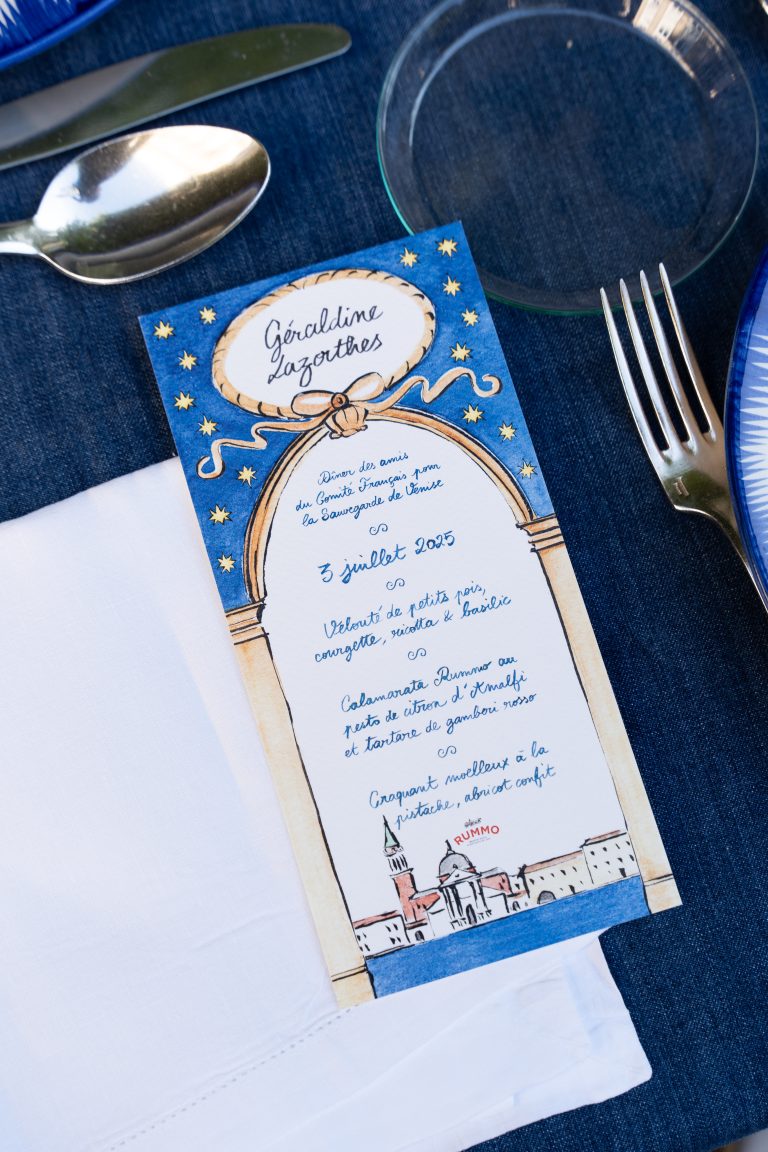 Géraldine
Lazorthes
Dîner des amis
du Comité Français pour
la Sauvegarde de Venise
3 juillet 2025
Velouté de petits pois,
courgette, ricotta & basilic
Calamarata Rummo au
pesto de citron d'Amalfi
et tartare de gamberi rosso
Craquant moelleux à la
pistache, abricot confit
RUMMO